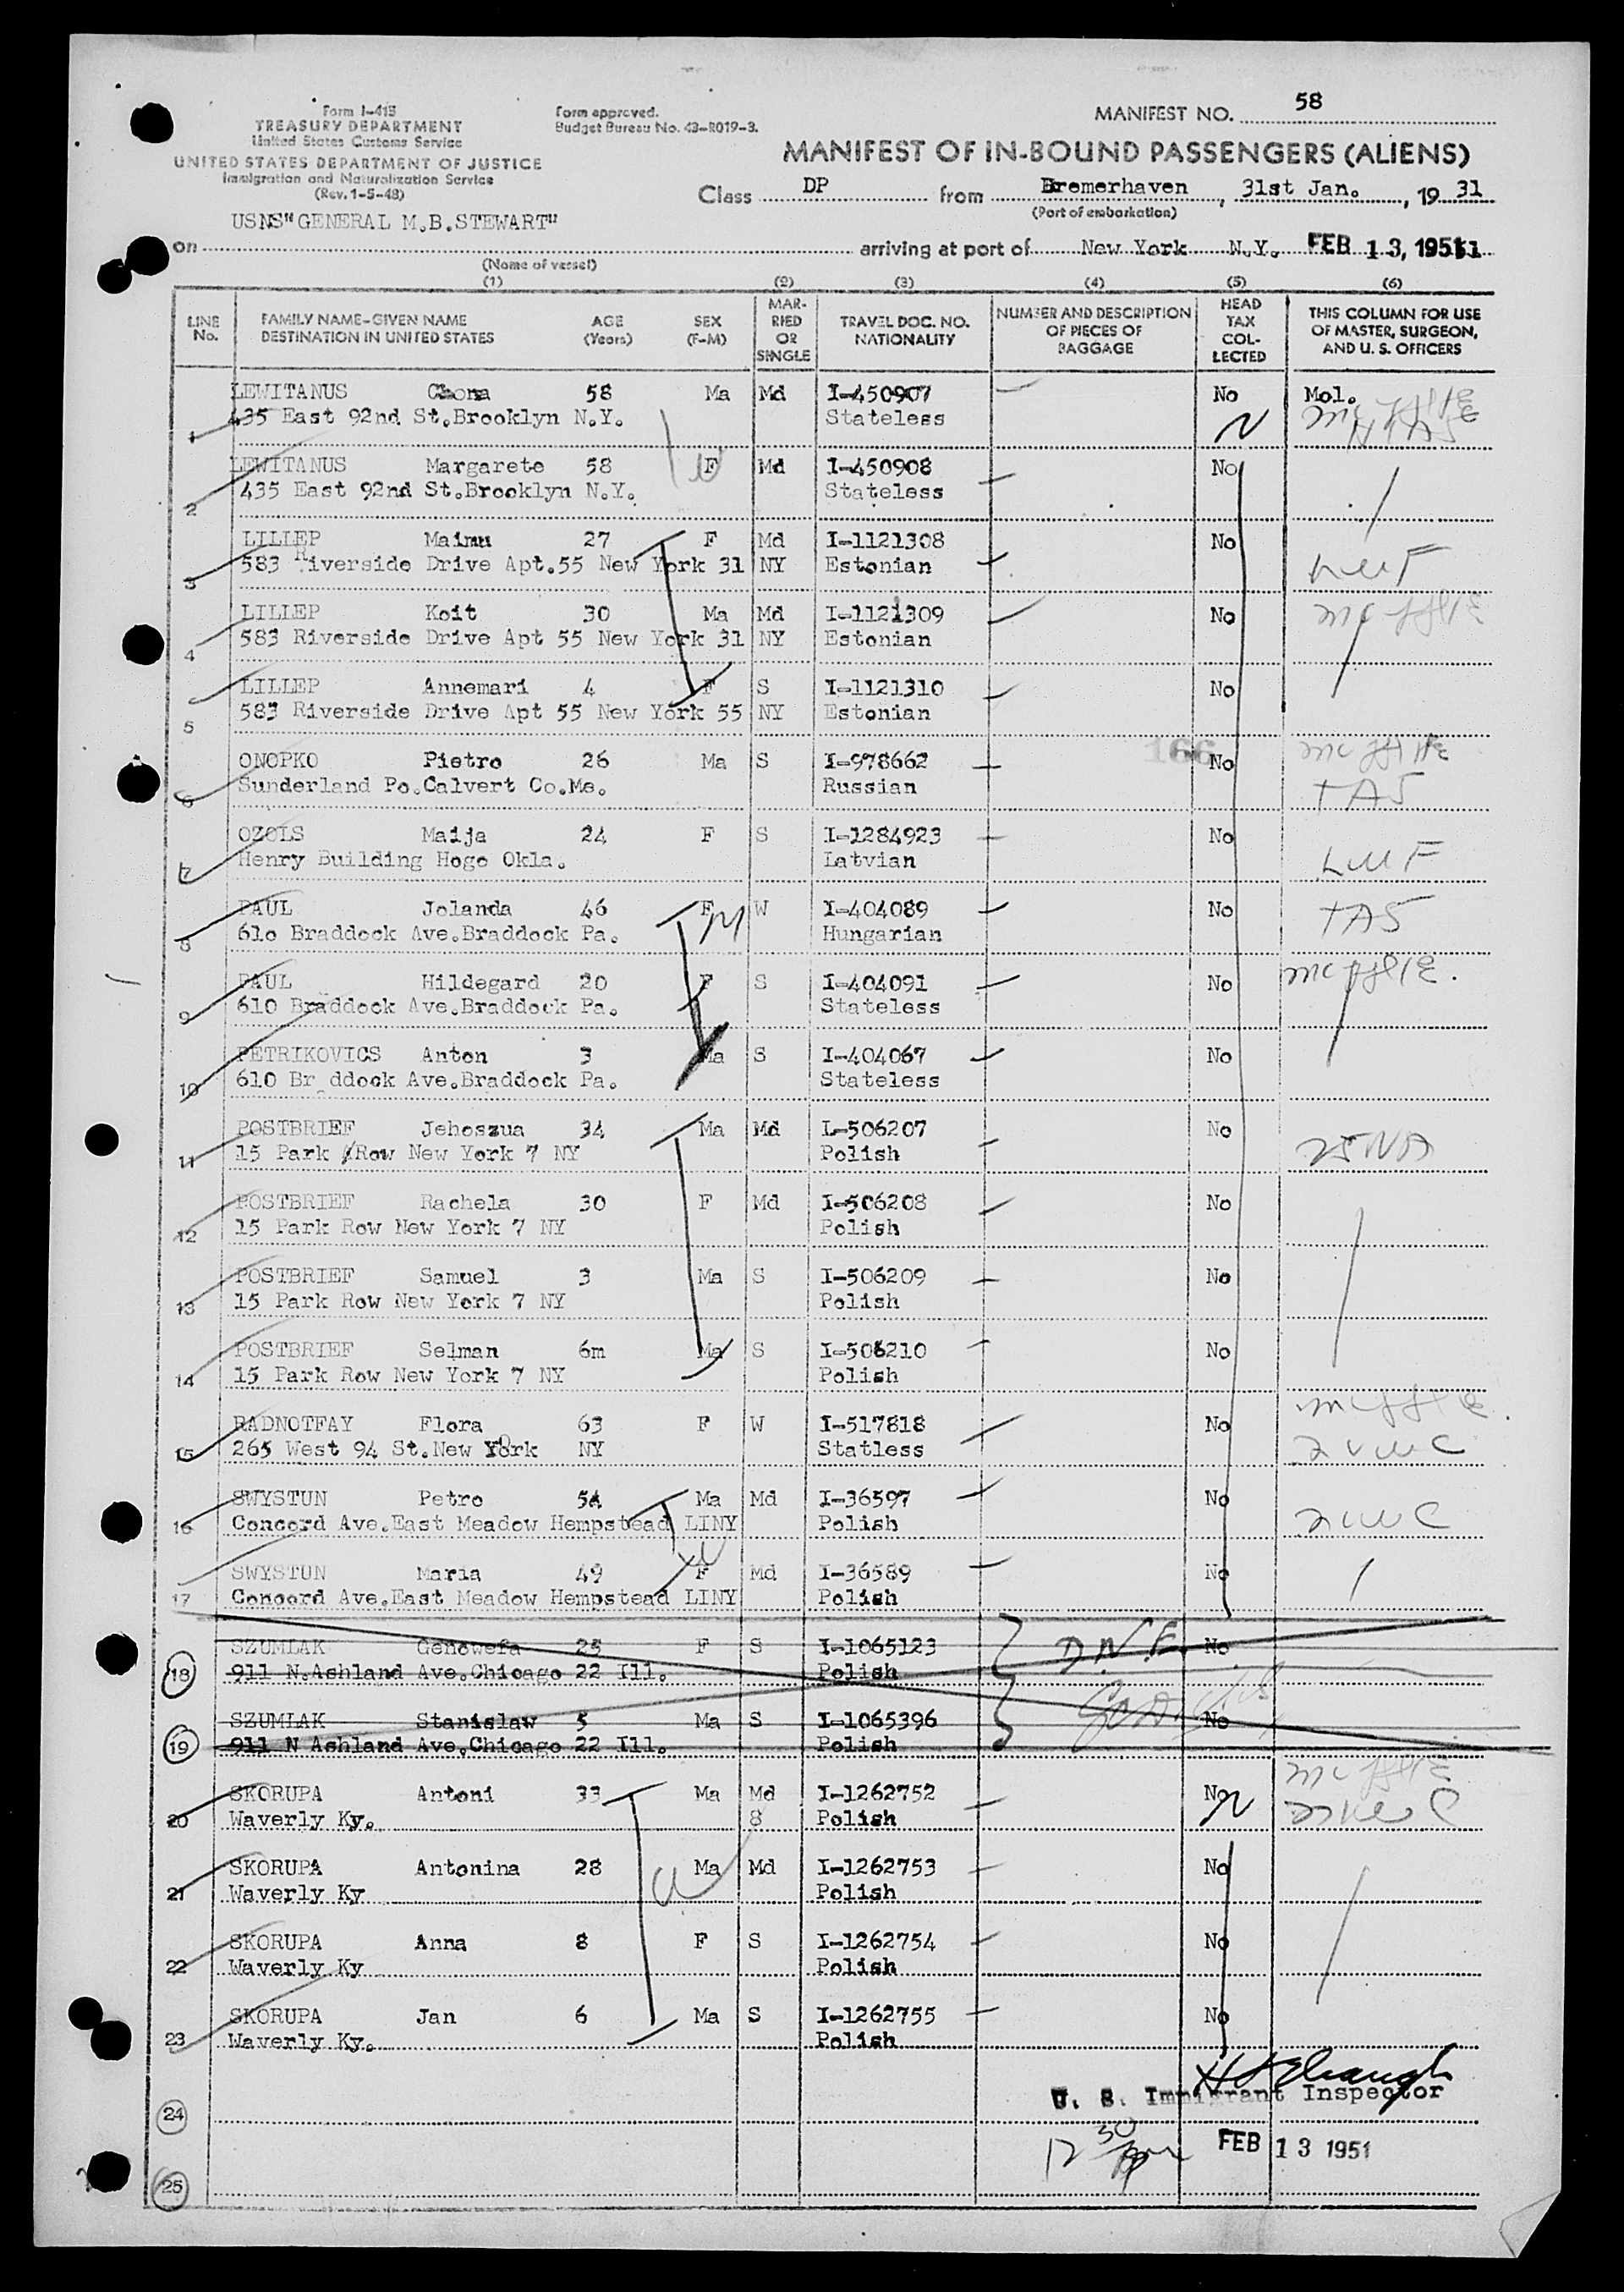 Form I-415
TREASURY DEPARTMENT
United States Customs Service
UNITED STATES DEPARTMENT OF JUSTICE
Immigration and Naturalization Service
(Rev. 1-5-48)
Form approved.
Budget Bureau No. 43-R019-3.
MANIFEST NO. 58
MANIFEST OF IN-BOUND PASSENGERS (ALIENS)
Class DP from Bremerhaven, 31st Jan., 19 31
(Port of embarkation)
USNS"GENERAL M.B.STEWART"
on arriving at port of New York N.Y. FEB 13, 1951
(Name of vessel)
(1) (2) (3) (4) (5) (6)
LINE No. FAMILY NAME-GIVEN NAME DESTINATION IN UNITED STATES AGE (Years) SEX (F-M) MARRIED OR SINGLE TRAVEL DOC. NO. NATIONALITY NUMBER AND DESCRIPTION OF PIECES OF BAGGAGE HEAD TAX COLLECTED THIS COLUMN FOR USE OF MASTER, SURGEON, AND U. S. OFFICERS
LEWITANUS Chona 58 Ma Md I-450907 No Mol.
1 435 East 92nd St.Brooklyn N.Y. Stateless N
LEWITANUS Margarete 58 F Md I-450908 No
2 435 East 92nd St.Brooklyn N.Y. Stateless
LILLEP Maimu 27 F Md I-1121308 No
3 583 Riverside Drive Apt.55 New York 31 NY Estonian LMF
LILLEP Koit 30 Ma Md I-1121309 No
4 583 Riverside Drive Apt 55 New York 31 NY Estonian
LILLEP Annemari 4 F S I-1121310 No
5 583 Riverside Drive Apt 55 New York 55 NY Estonian
166
ONOPKO Pietro 26 Ma S I-978662 No
6 Sunderland Po.Calvert Co.Me. Russian TAS
OZOLS Maija 24 F S I-1284923 No
7 Henry Building Hogo Okla. Latvian LMF
PAUL Jolanda 46 F W I-404089 No TAS
8 61o Braddock Ave.Braddock Pa. Hungarian
PAUL Hildegard 20 F S I-404091 No
9 610 Braddock Ave.Braddock Pa. Stateless
PETRIKOVICS Anton 3 Ma S I-404067 No
10 610 Br ddock Ave.Braddock Pa. Stateless
POSTBRIEF Jehoszua 34 Ma Md I-506207 No
11 15 Park Row New York 7 NY Polish
POSTBRIEF Rachela 30 F Md I-506208 No
12 15 Park Row New York 7 NY Polish
POSTBRIEF Samuel 3 Ma S I-506209 No
13 15 Park Row New York 7 NY Polish
POSTBRIEF Selman 6m Ma S I-506210 No
14 15 Park Row New York 7 NY Polish
RADNOTFAY Flora 63 F W I-517818 No
15 265 West 94 St.New York NY Statless
SWYSTUN Petro 54 Ma Md I-36597 No
16 Concord Ave.East Meadow Hempstead LINY Polish
SWYSTUN Maria 49 F Md I-36589 No
17 Concord Ave.East Meadow Hempstead LINY Polish
SZUMLAK Genowefa 25 F S I-1065123 D.N.E. No
18 911 N.Ashland Ave.Chicago 22 Ill. Polish
SZUMLAK Stanislaw 5 Ma S I-1065396 No
19 911 N Ashland Ave.Chicago 22 Ill. Polish
SKORUPA Antoni 33 Ma Md I-1262752 No
20 Waverly Ky. S Polish N
SKORUPA Antonina 28 Ma Md I-1262753 No
21 Waverly Ky Polish
SKORUPA Anna 8 F S I-1262754 No
22 Waverly Ky Polish
SKORUPA Jan 6 Ma S I-1262755 No
23 Waverly Ky. Polish
U. S. Immigrant Inspector
24
12 30 pm FEB 13 1951
25